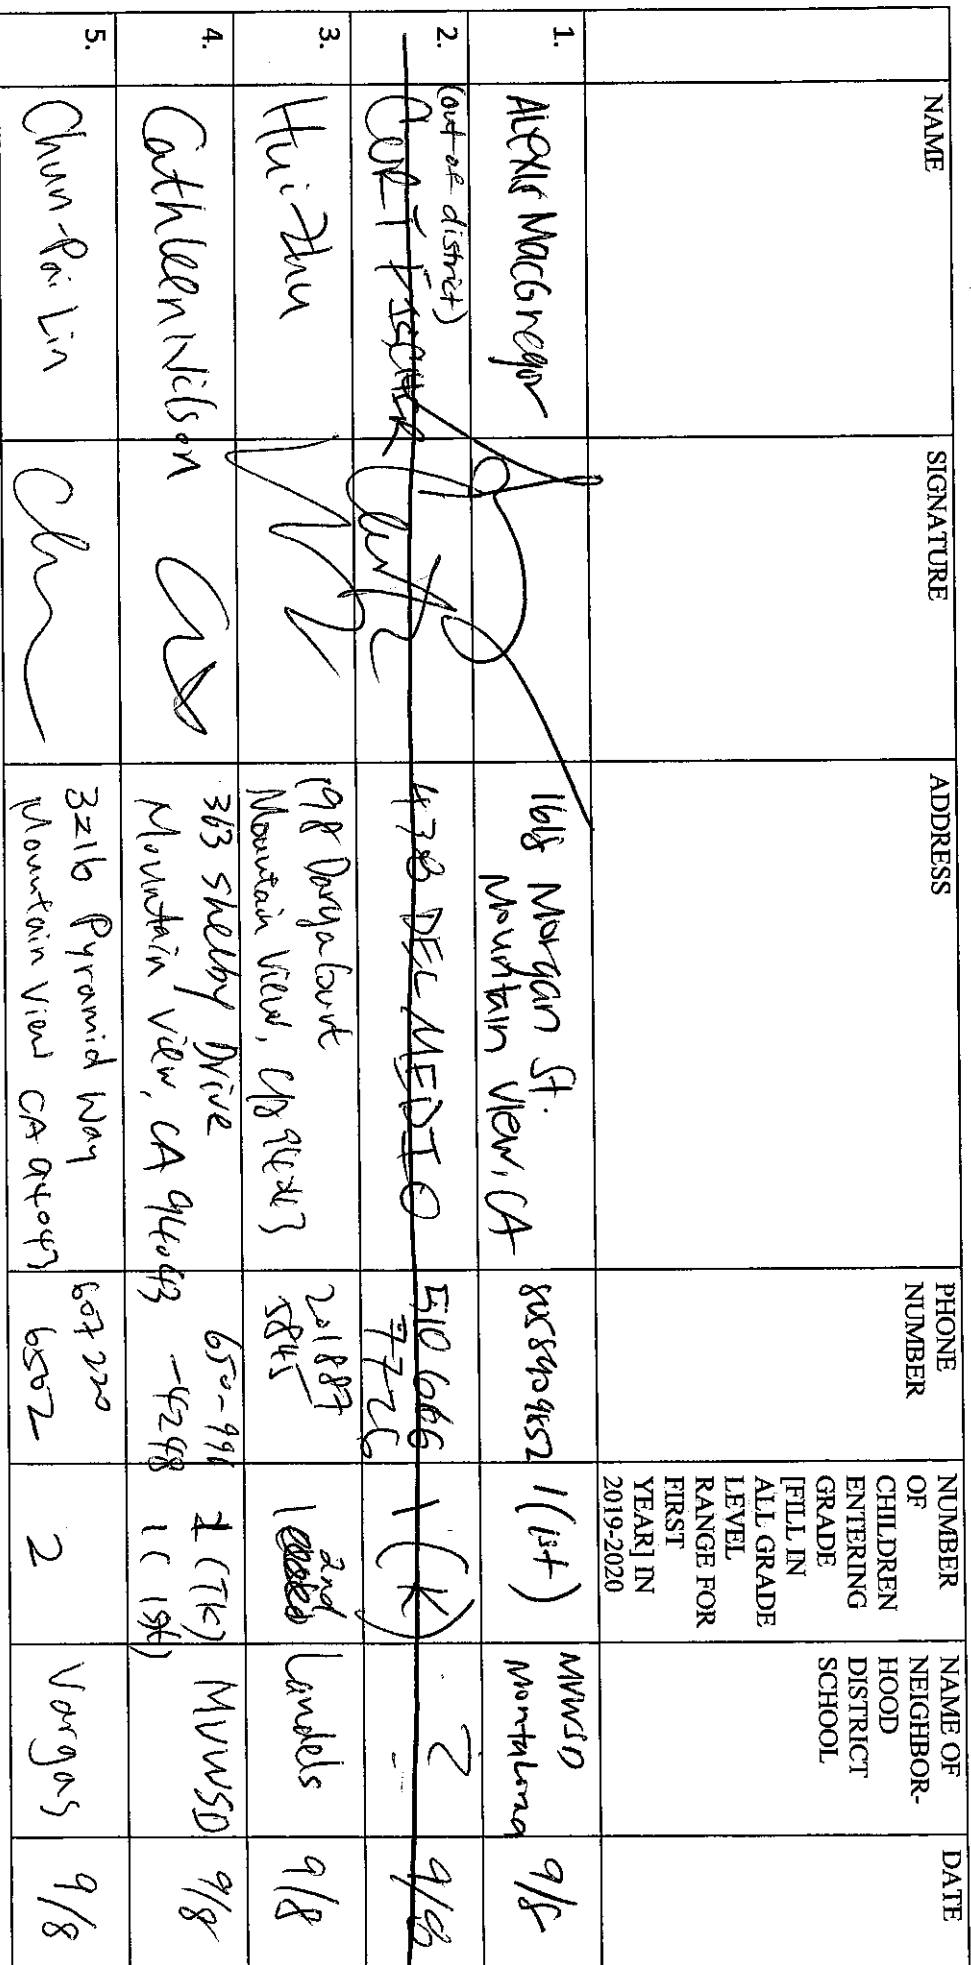 NAME
SIGNATURE
ADDRESS
PHONE
NUMBER
NUMBER
OF
CHILDREN
ENTERING
GRADE
[FILL IN
ALL GRADE
LEVEL
RANGE FOR
FIRST
YEAR] IN
2019-2020
NAME OF
NEIGHBOR-
HOOD
DISTRICT
SCHOOL
DATE
1.
Alexis MacGregor
1618 Morgan St.
Mountain View, CA
8058909852
1 (1st)
MVWSD
Montaloma
9/8
2.
(out of district)
CORI FISCHER
438 DEL MEDIO
510 666
7726
1 (K)
?
9/8
3.
Hui Zhu
198 Court
Mountain View, CA 94043
201 887
5845
1 2nd
Landels
9/8
4.
Cathleen Wilson
363 Shelby Drive
Mountain View, CA 94043
-4248
1 (TK)
1 (1st)
MVWSD
9/8
5.
Chun-Pai Lin
3216 Pyramid Way
Mountain View CA 94043
607 220
6502
2
Vargas
9/8